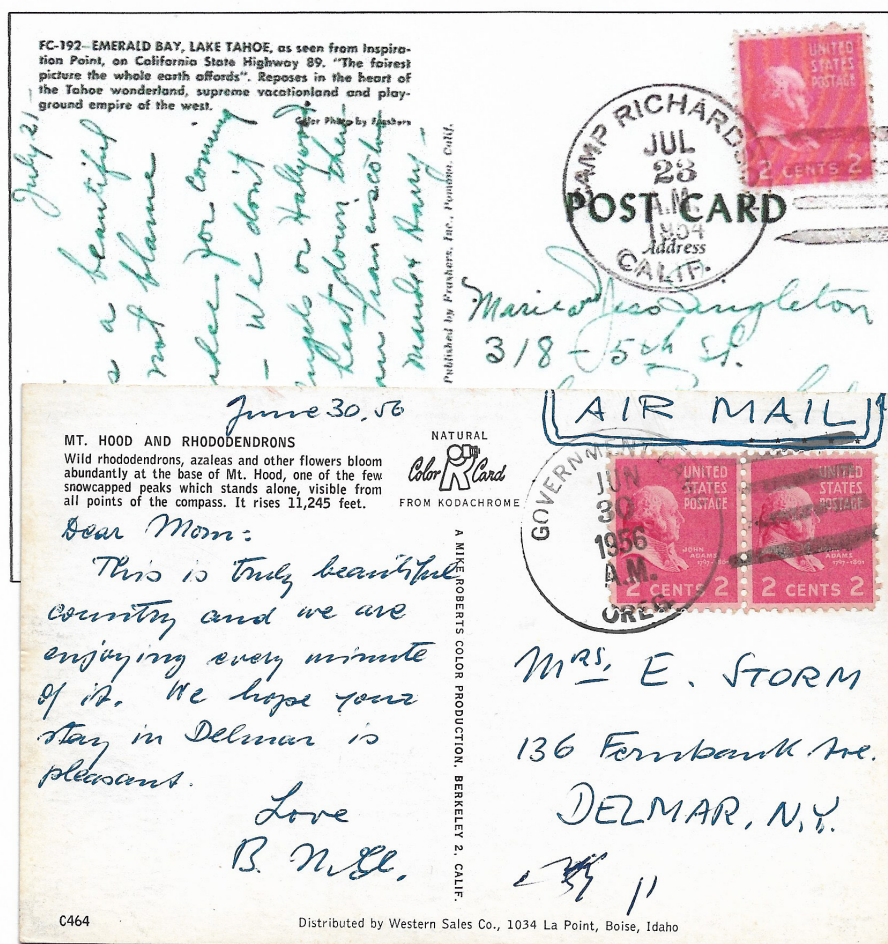 FC-192—EMERALD BAY, LAKE TAHOE, as seen from Inspira-
tion Point, on California State Highway 89. "The fairest
picture the whole earth affords". Reposes in the heart of
the Tahoe wonderland, supreme vacationland and play-
ground empire of the west.
Color Photo by Frashers
July 21—
a beautiful
not blame
for coming
- We don't
or Hollywood
heat down there
San Francisco
Harry—
Published by Frashers, Inc., Pomona, Calif.
UNITED
STATES
POSTAGE
2 CENTS 2
CAMP RICHARDS
JUL
23
A.M.
1954
CALIF.
POST CARD
Address
Marie and Jess Singleton
318 - 5th St.
June 30, 56
MT. HOOD AND RHODODENDRONS
Wild rhododendrons, azaleas and other flowers bloom
abundantly at the base of Mt. Hood, one of the few
snowcapped peaks which stands alone, visible from
all points of the compass. It rises 11,245 feet.
NATURAL
Color Card
FROM KODACHROME
Dear Mom:
This is truly beautiful
country and we are
enjoying every minute
of it. We hope your
stay in Delmar is
pleasant.
Love
B.
C464
A MIKE ROBERTS COLOR PRODUCTION, BERKELEY 2, CALIF.
AIR MAIL
GOVERNMENT
JUN
30
1956
A.M.
OREG.
UNITED
STATES
POSTAGE
JOHN
ADAMS
1797-1801
2 CENTS 2
UNITED
STATES
POSTAGE
JOHN
ADAMS
1797-1801
2 CENTS 2
MRS. E. STORM
136 Fernbank Ave.
DELMAR, N.Y.
Distributed by Western Sales Co., 1034 La Point, Boise, Idaho